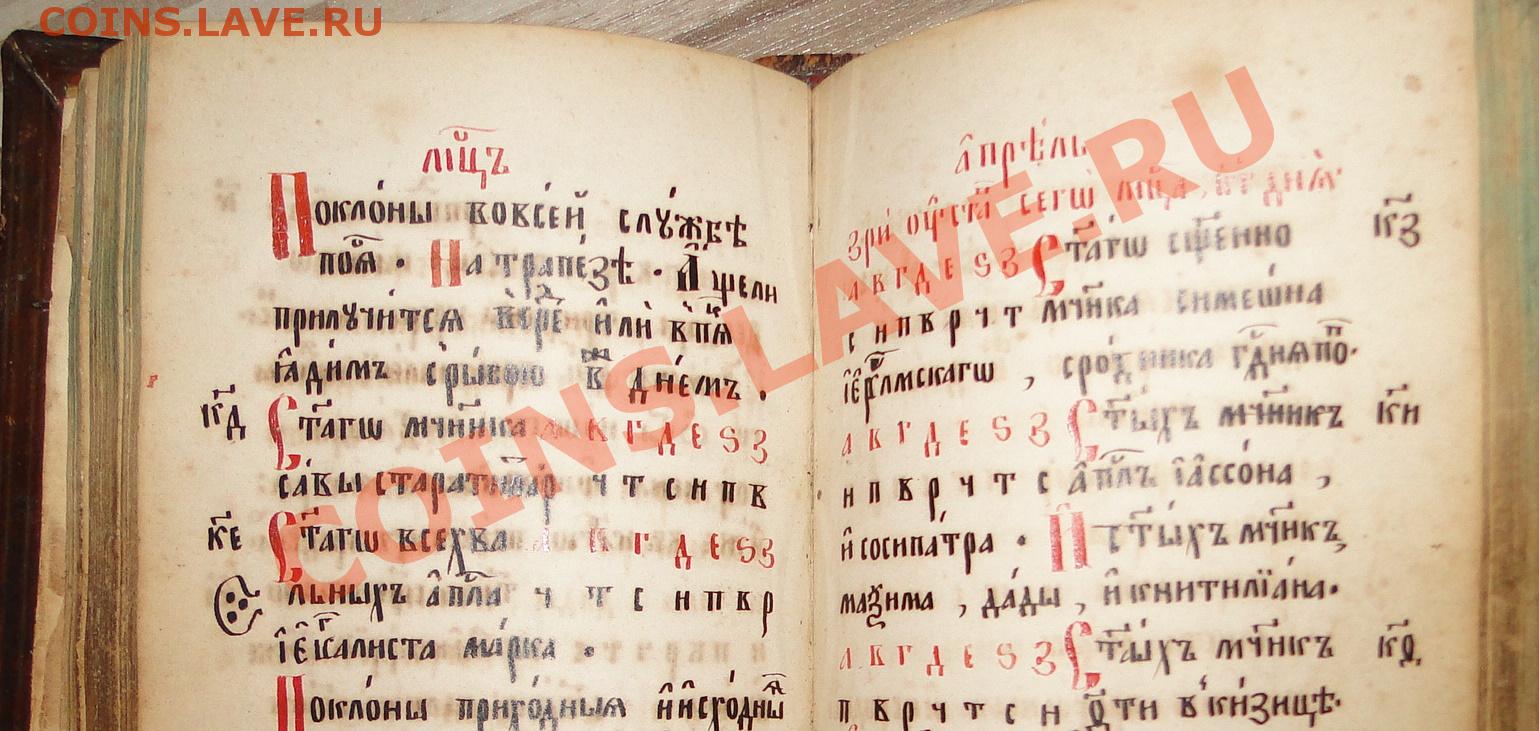 COINS.LAVE.RU
COINS.LAVE.RU
мц҃ъ
Покло́ны вовсе́й слу́жбѣ
поѧ҃ . На трапе́зѣ . А҆щели
прилꙋчи́тсѧ и҆лѝ
ꙗ҆ди́мъ с̾ры́бою днє́мъ .
к҃д
Ст҃агѡ мч҃ника а в г д е ѕ з
са́вы ч т с н п в
к҃е
Ст҃агѡ всехва а в г д е ѕ з
льныхъ а҆пⷭ҇ла ч т с н п в р
і҆ є҆ѵⷢ҇алиста ма́рка .
Покло́ны прихо́дныѧ и҆и҆схо́дны
а҆прѣ́ль
Зри́ ѡу҆ста́ сегѡ̀ мц҃а, к҃г днѧ̀
а в г д е ѕ з Ст҃агѡ сщ҃енно к҃з
с н п в р ч т мч҃ника симеѡ́на
і҆ер҃лмскагѡ , сро́дника гдⷭ҇нѧ по.
а в г д е ѕ з Ст҃ыхъ мч҃никъ к҃и
н п в р ч т с а҆пⷭ҇лъ і҆ассо́на ,
и҆ сосипа́тра . И҆ ст҃ы́хъ мч҃нкъ,
маѯима , да́ды , и҆ кинтилїа́на.
а в г д е ѕ з Ст҃ы́хъ мч҃нкъ к҃ѳ
п в р ч т с н ѳ҃ ти в̾ ки́зицѣ.